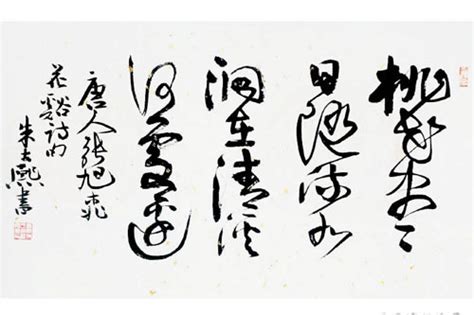 桃花尽
日随流水
洞在清溪
何處邊
唐人张旭桃
花谿诗句
朱大熙書